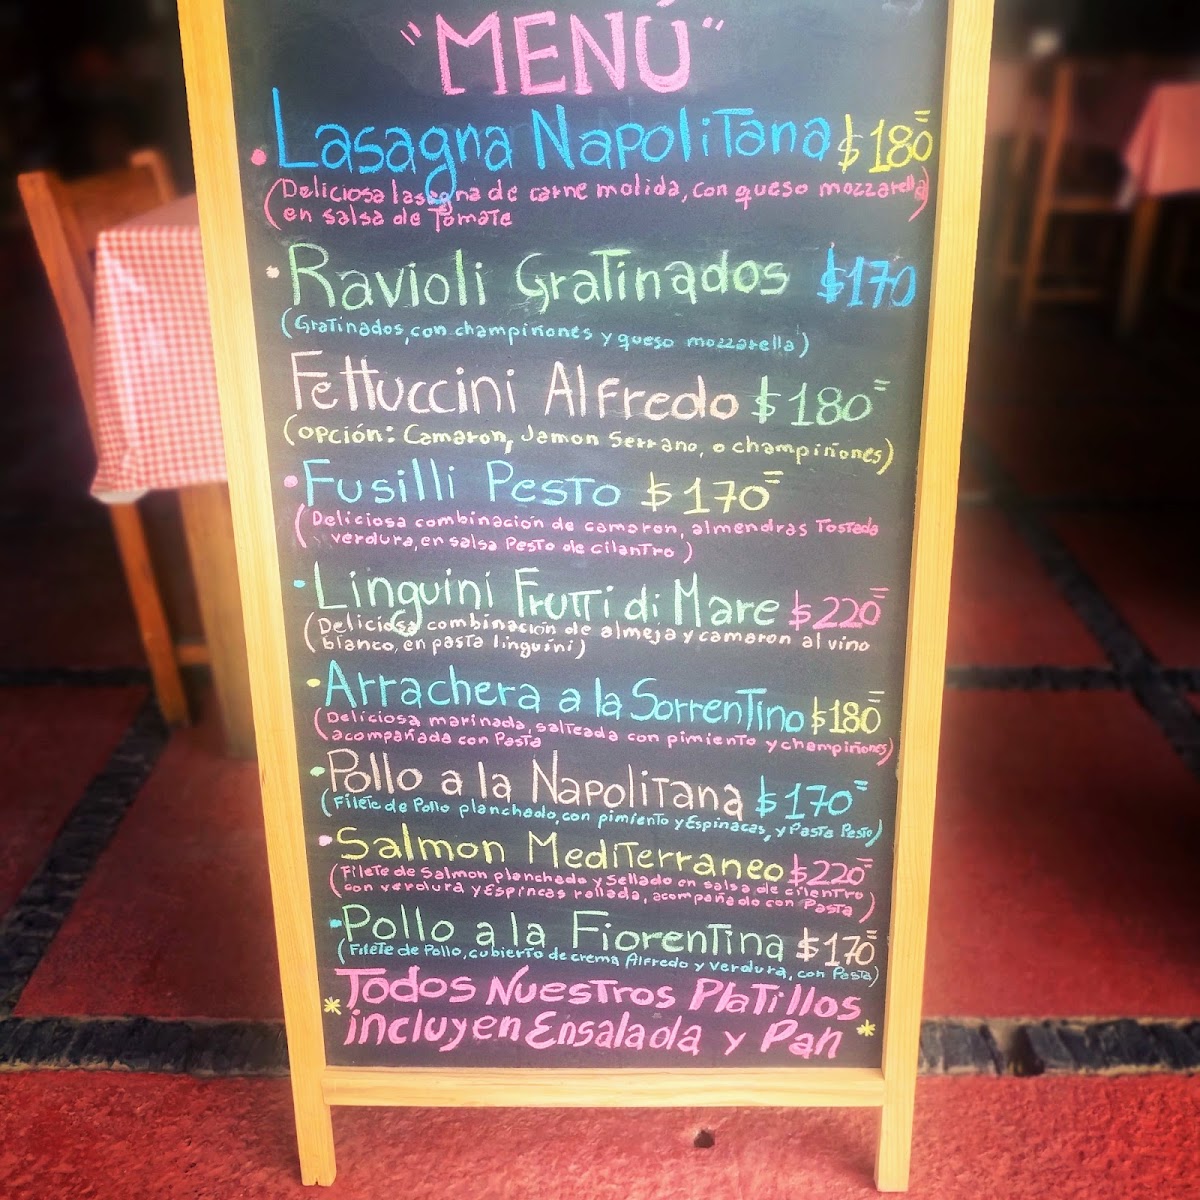 "MENÚ"
Lasagna Napolitana $180
(Deliciosa lasagna de carne molida, con queso mozzarella)
en salsa de Tomate
Ravioli Gratinados $170
(Gratinados, con champiñones y queso mozzarella)
Fettuccini Alfredo $180
(opción: Camaron, Jamon Serrano, o champiñones)
Fusilli Pesto $170
(Deliciosa combinación de camaron, almendras Tostada
verdura, en salsa Pesto de cilantro)
Linguini Frutti di Mare $220
(Deliciosa combinación de almeja y camaron al vino
blanco, en pasta linguini)
Arrachera a la Sorrentino $180
(Deliciosa, marinada, salteada con pimiento y champiñones)
acompañada con Pasta
Pollo a la Napolitana $170
(Filete de Pollo planchado, con pimiento y Espinacas, y Pasta Pesto)
Salmon Mediterraneo $220
(Filete de Salmon planchado y Sellado en salsa de cilentro
con verdura y Espincas rallada, acompañado con Pasta)
Pollo a la Fiorentina $170
(Filete de Pollo, cubierto de crema Alfredo y verdura, con Pasta)
*Todos Nuestros Platillos
incluyen Ensalada y Pan*